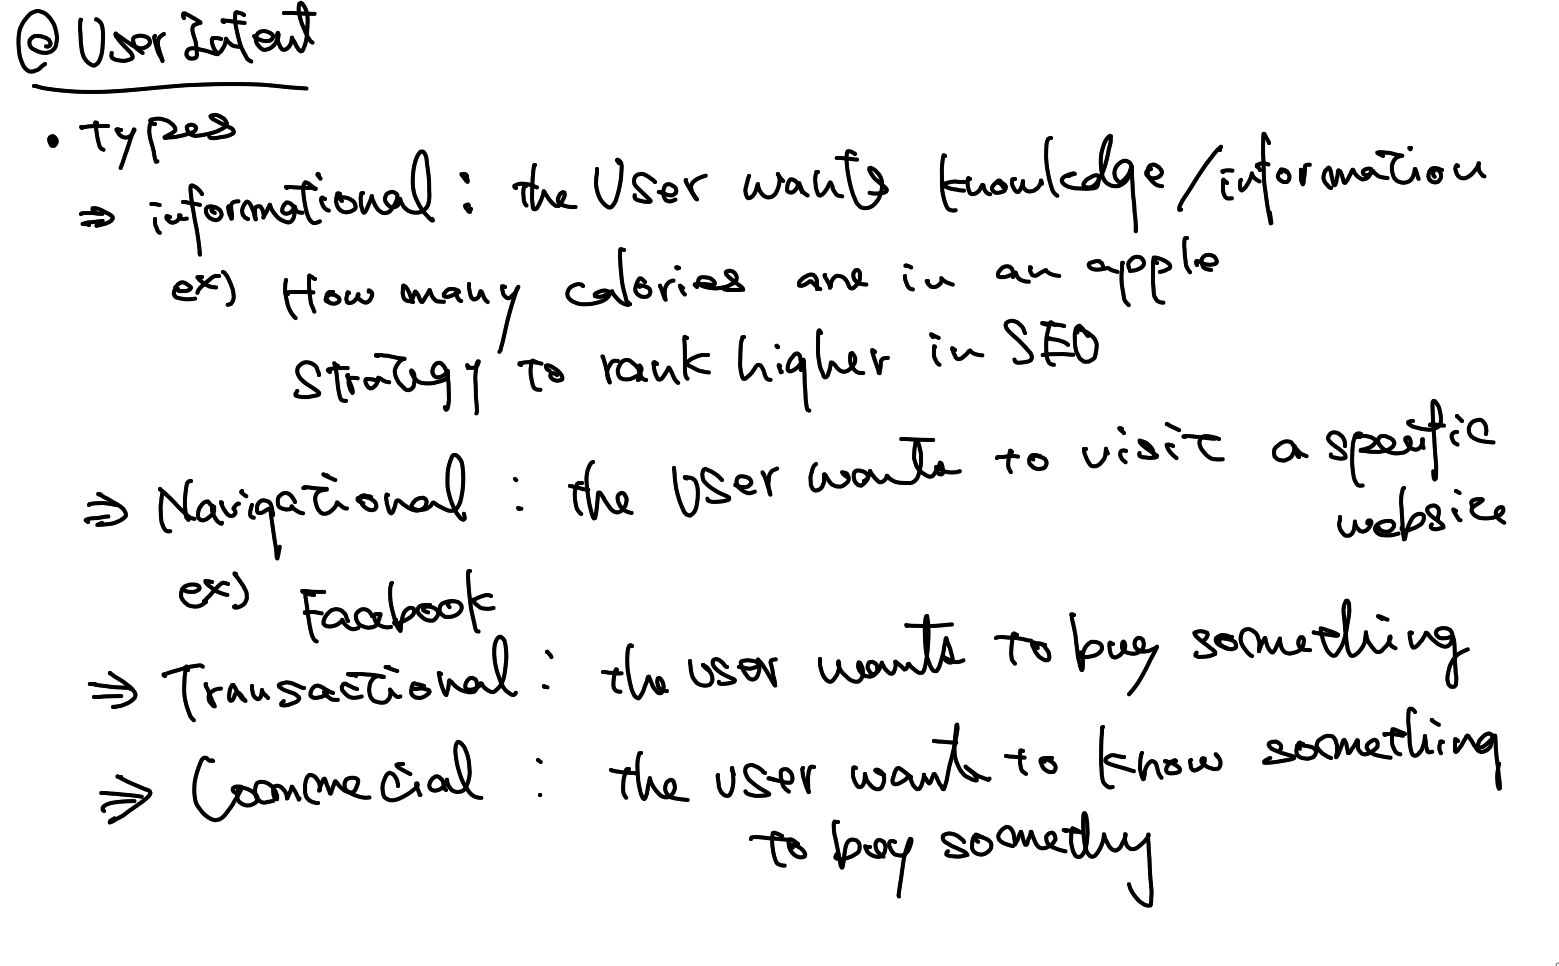 @ User Intent
• Types
⇒ informational : the User wants knowledge/information
ex) How many calories are in an apple
Strategy to rank higher in SEO
⇒ Navigational : the User wants to visit a specific
website
ex) Facebook
⇒ Transactional : the user wants to buy something
⇒ Commecial : the user wants to know something
to buy something